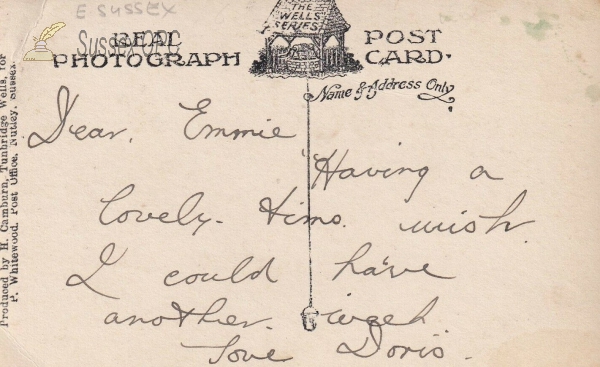 E SUSSEX
SussexOPC
THE
WELLS
SERIES
REAL
PHOTOGRAPH
POST
CARD.
Name & Address Only
Produced by H. Camburn, Tunbridge Wells, for
P. Whitewood, Post Office, Nutley, Sussex.
Dear. Emmie
Having a
lovely. time. wish.
I could have
another. week
love Doris.